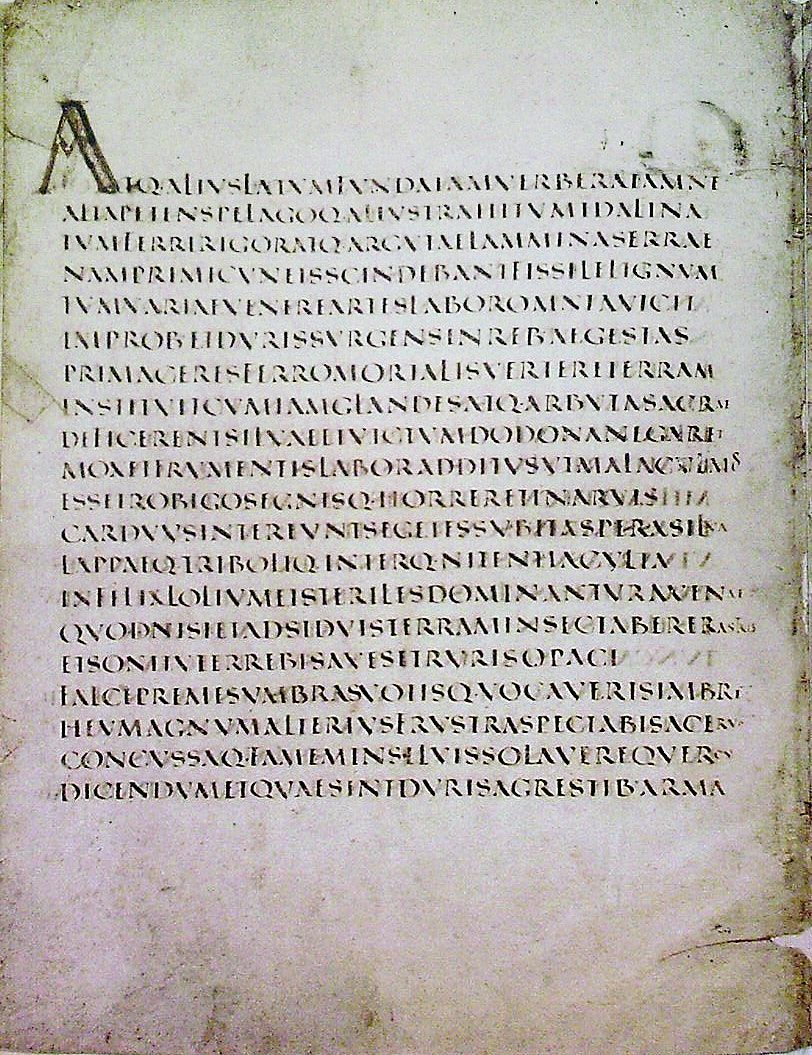 ATQALIVSLATVMFVNDAIAMVERBERATAMNE
ALTAPETENSPELAGOQALIVSTRAHITVMIDALINA
TVMFERRIRIGORATQARGVTAELAMMINASERRAE
NAMPRIMICVNEISSCINDEBANTFISSILELIGNVM
TVMVARIAEVENEREARTESLABOROMNIAVICIT
IMPROBETDVRISSVRGENSINREBAEGESTAS
PRIMACERESFERROMORTALISVERTERETERRAM
INSTITVITCVMIAMGLANDESATQARBVTASACRAE
DEFICERENTSILVAEETVICTVMDODONANEGARET
MOXETFRVMENTISLABORADDITVSVTMALACVLMOS
ESSETROBIGOSEGNISQ·HORRERETINARVIS
CARDVVSINTEREVNTSEGETESSVBITASPERASILVA
LAPPAEQTRIBOLIQ·INTERQ·NITENTIACVLTA
INFELIXLOLIVMETSTERILESDOMINANTVRAVENAE
QVODNISIETADSIDVISTERRAMINSECTABERERASTRIS
ETSONITVTERREBISAVESETRVRISOPACI
FALCEPREMESVMBRASVOTISQVOCAVERISIMBRE
HEVMAGNVMALTERIVSFRVSTRASPECTABISACERVO
CONCVSSAQ·FAMEMINSILVISSOLAVEREQVERCV
DICENDVMETQVAESINTDVRISAGRESTIB·ARMA